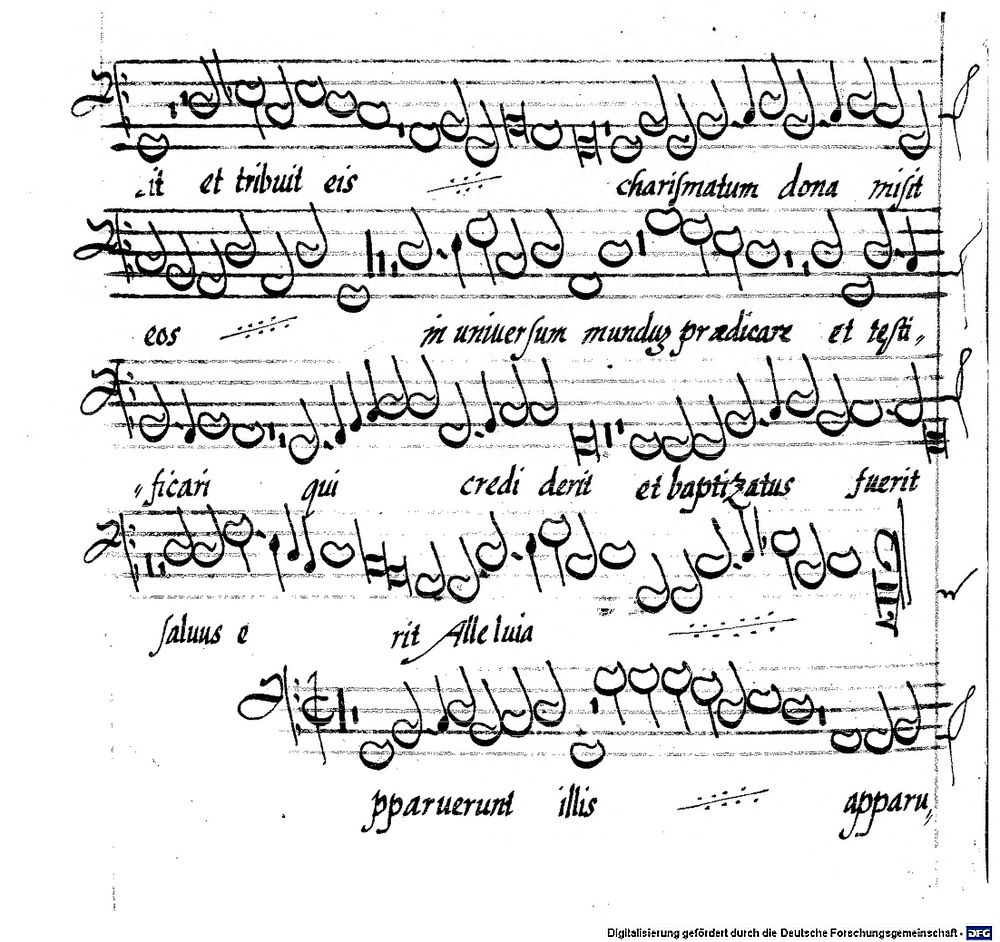 it et tribuit eis chariſmatum dona miſit
eos in univerſum munduʒ prædicare et teſti〃
〃ficari qui credi derit et baptiʒatus fuerit
ſaluus e rit Alleluia
pparuerunt illis apparu〃
Digitalisierung gefördert durch die Deutsche Forschungsgemeinschaft - DFG